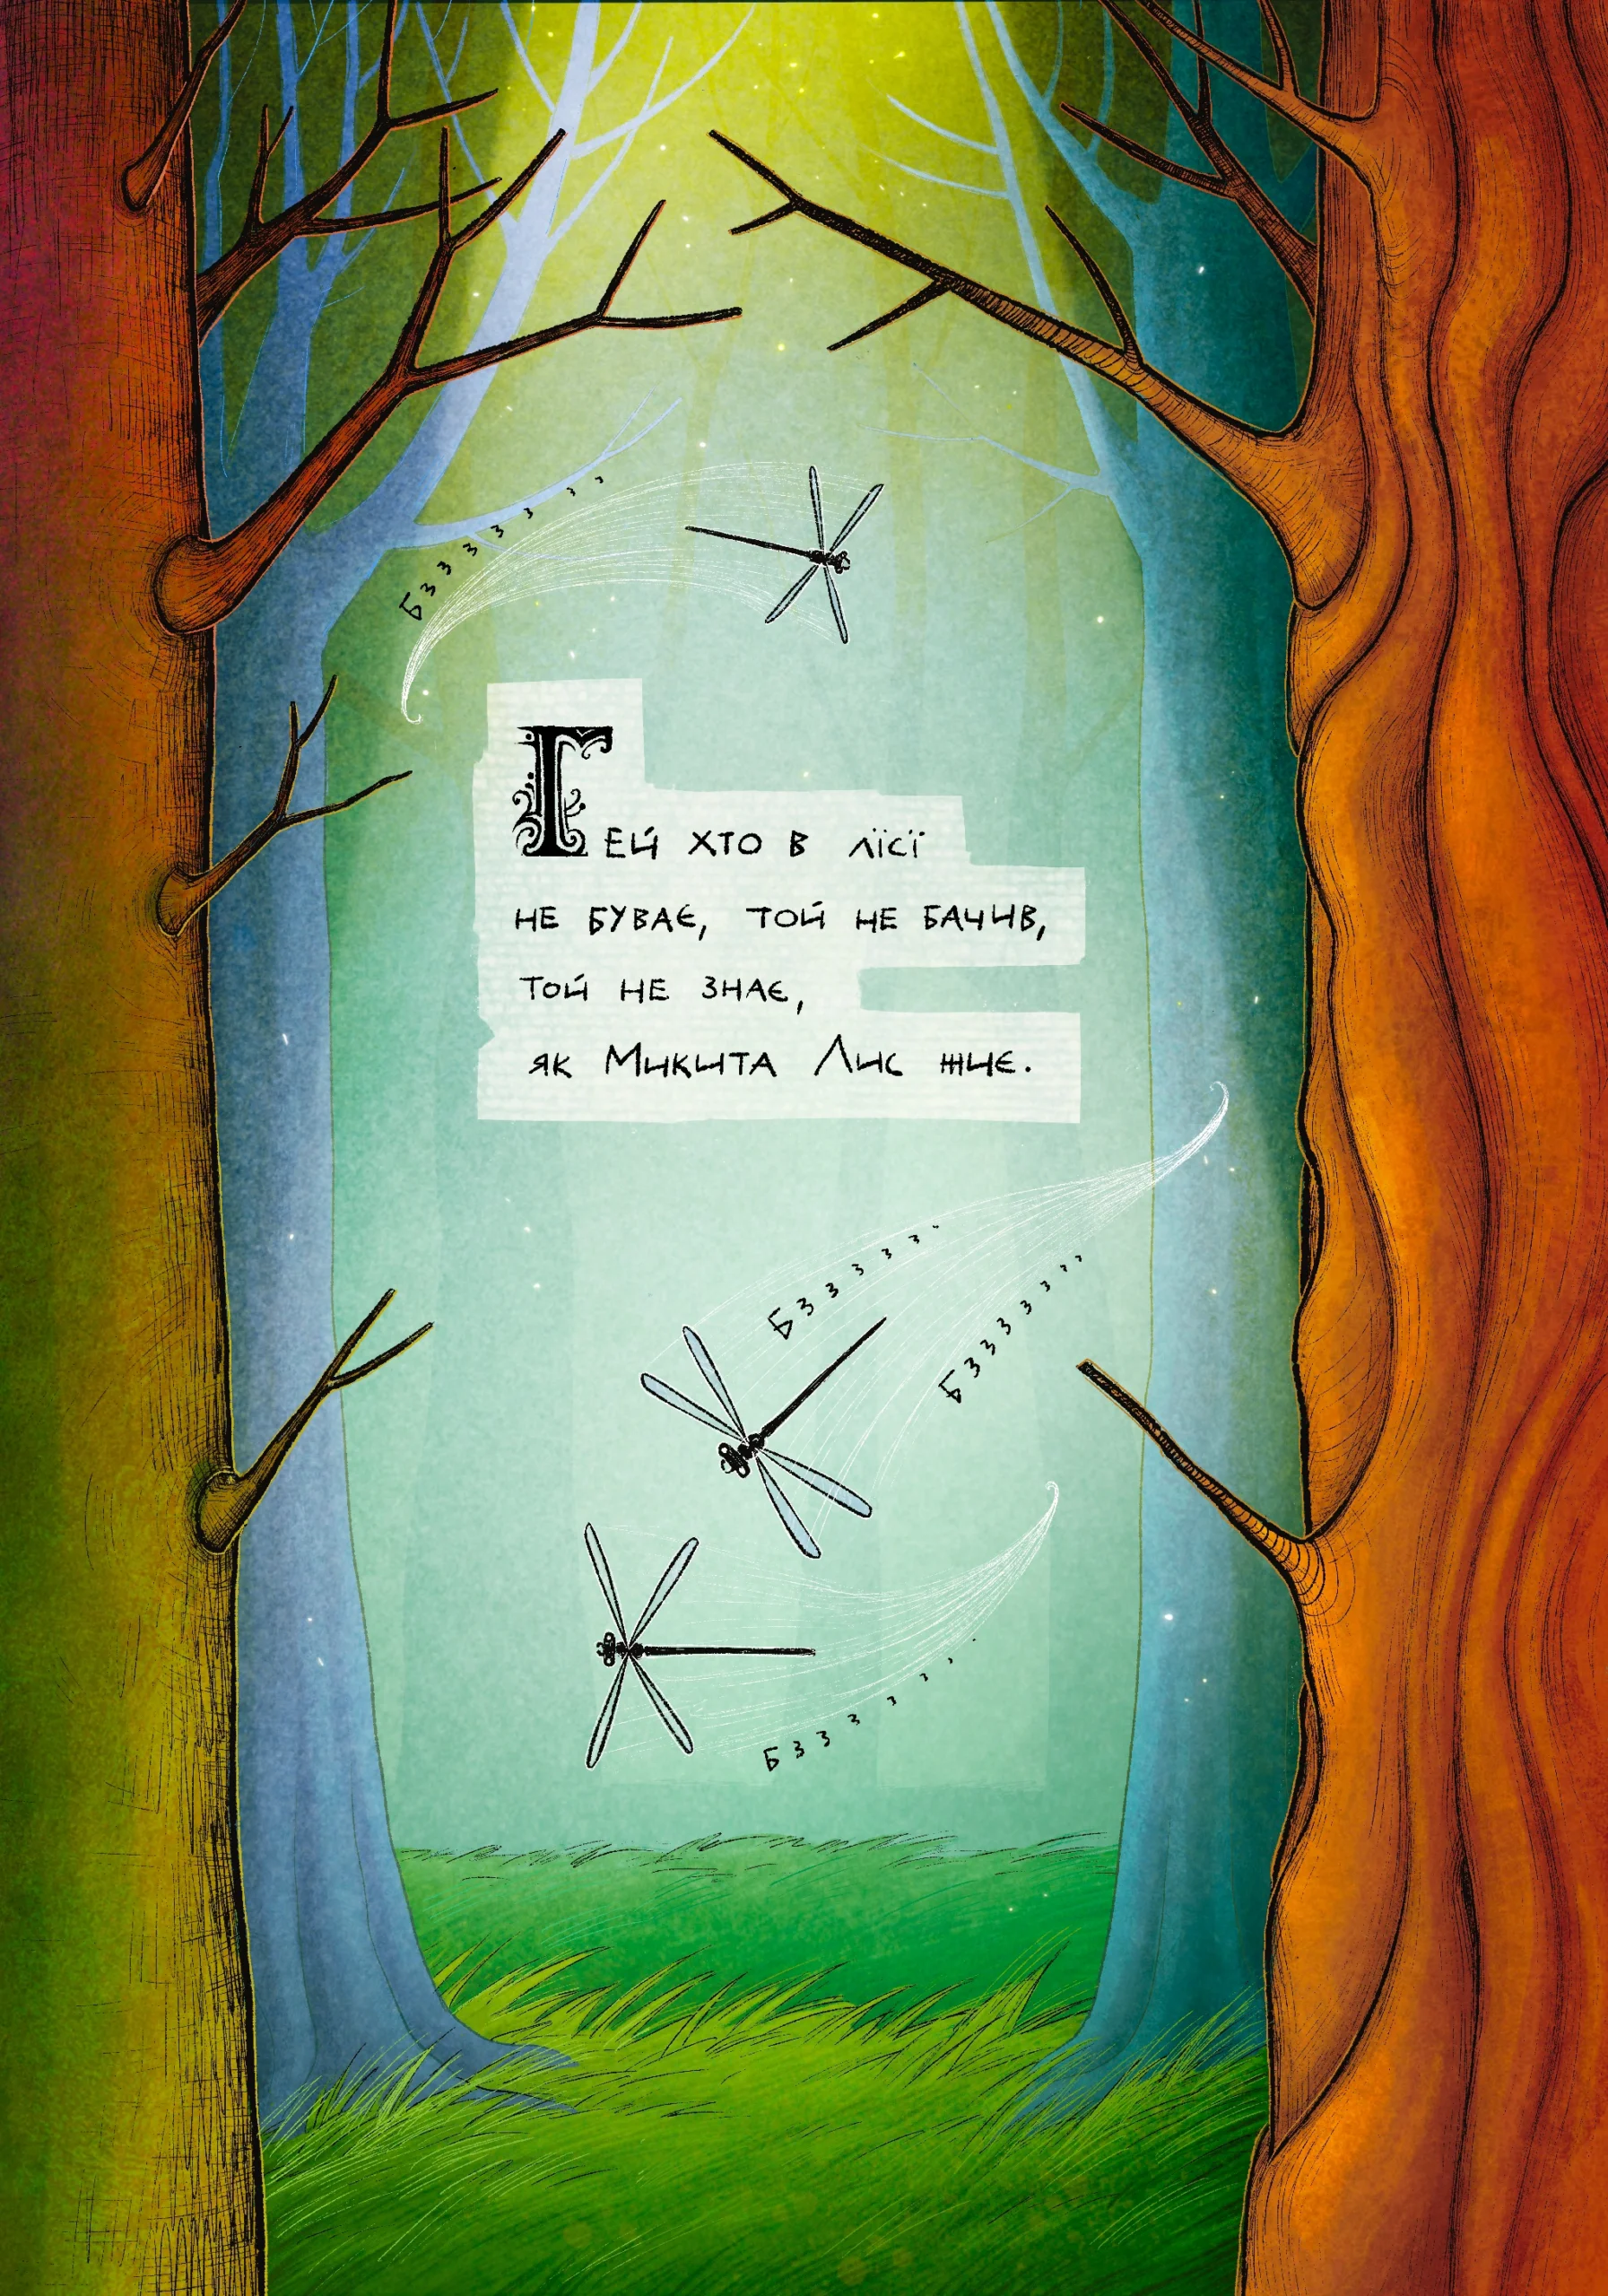 Бззззззз
Гей хто в лїсї
не буває, той не бачив,
той не знає,
як Микита Лис жиє.
Бззззззз
Бзззззззз
Бзззззззз